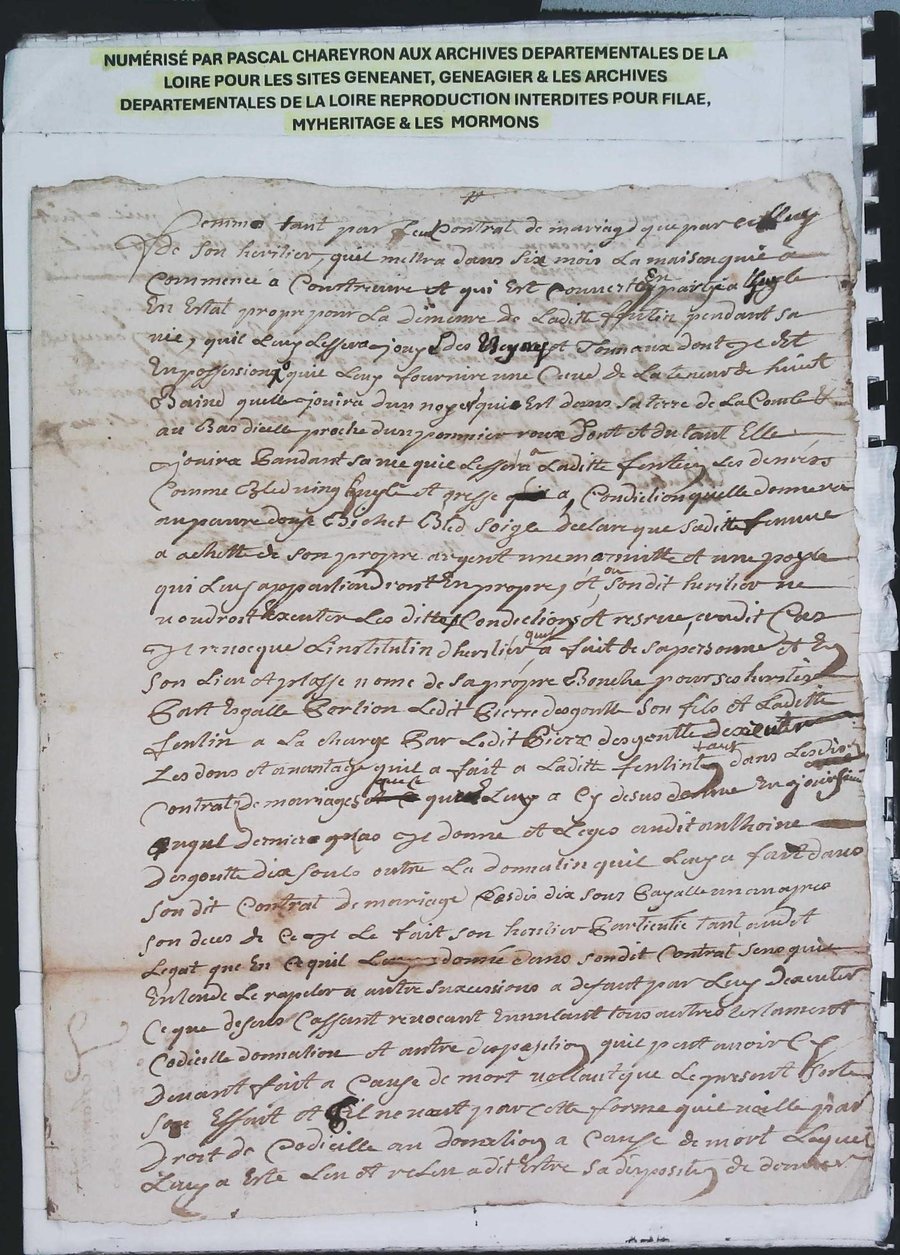 NUMÉRISÉ PAR PASCAL CHAREYRON AUX ARCHIVES DEPARTEMENTALES DE LA
LOIRE POUR LES SITES GENEANET, GENEAGIER & LES ARCHIVES
DEPARTEMENTALES DE LA LOIRE REPRODUCTION INTERDITES POUR FILAE,
MYHERITAGE & LES MORMONS
femme tant par contrat de mariage que par
De son heritier, quil mettra dans six mois la maison quil a
Commencé a Construire et qui Est Couvert En partie a
En Estat propre pour La demeure de Laditte fentin pendant sa
vie, quil Luy Lessera jouy des et Tonnaux dont Je Est
En possession quil Luy fournire une Cuve de La teneur de huict
Baine quelle jouira dun noyer qui Est dans sa terre de La Combe
au Bas dicelle proche dun pommier roux dont Et du tant Elle
jouira Pandant sa vie quil Lessera a Laditte fentin Les denrés
Comme Bled ving huysle Et gresse a Condiction quelle donnera
au pauvre douze Bichet Bled soigle declare que saditte femme
a achetté de son propre argent une marmitte et une poyle
qui Luy appartiendront En propre, Et ou sondit heritier ne
voudroit Executer Les dittes Condictions Et reserve, audit Cas
Je revocque Linstitutin dheritier quil a fait de sa personne Et En
son Lieu Et plasse nome de sa propre Bouche pour ses heritier
Part Esgalle Portion Ledit Pierre desgoutte son fils Et Laditte
fentin a La charge Par Ledit Pierre desgoutte dexecuter
Les dons Et avantage quil a fait a Laditte fentin tant dans Les dis
Contrat de mariages que Ce quil Luy a Cy desus donné
auquel dernier Je donne Et Legue audit anthoine
Desgoutte dix souls outre La donnatin quil Luy a fait dans
son dit Contrat de mariage Lesdis dix sous Payalle un an apres
son deces de Ce Je Le fait son heritier Particulie tant audit
Legat que En Ce quil Luy a donné dans sondit Contrat sens quil
Entende Le rapeler a autre successions a defaut par Luy Dexecuter
Ce que desus Cassant revocant Ennulant tous autres testament
Codicille donnation Et autre disposition quil peut avoir Cy
Devant fait a Cause de mort vollant que Le present sorte
son Effait Et sil ne vaut par Cette forme quil vaille par
Droit de Codicille au donation a Cause de mort Lequel
Luy a Este Leu Et releu a dit Estre sa disposition de derniere